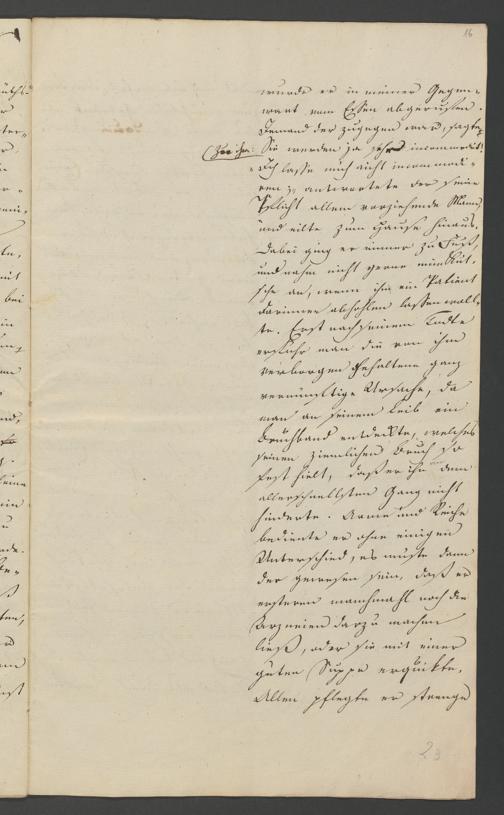 16
wurde er in meiner Gegen-
wart vom Essen abgerufen.
Jemand der zugegen war, sagte
zu ihr: Sie werden ja sehr incommodirt!
Ich lasse mich nicht incommodi-
ren, antwortete der seine
Pflicht allem vorziehende Mann,
und eilte zum Hause hinaus.
Dabei ging er immer zu Fuß,
und nahm nicht gerne eine Kut-
sche an, wenn ihn ein Patient
darinnen abhohlen lassen woll-
te. Erst nach seinem Todte
erfuhr man die von ihm
verborgen gehaltene ganz
vernünftige Ursache, da
man an seinem Leib ein
Bruchband entdeckte, welches
seinen ziemlichen Bruch so
fest hielt, daß er ihn am
allerschnellsten Gang nicht
hinderte. Arme und Reiche
bediente er ohne einigen
Unterschied, es müste dann
der gewesen sein, daß er
ersteren manchmahl noch die
Arzneien darzu machen
ließ, oder sie mit einer
guten Suppe erquikte.
Allen pflegte er strenge
23